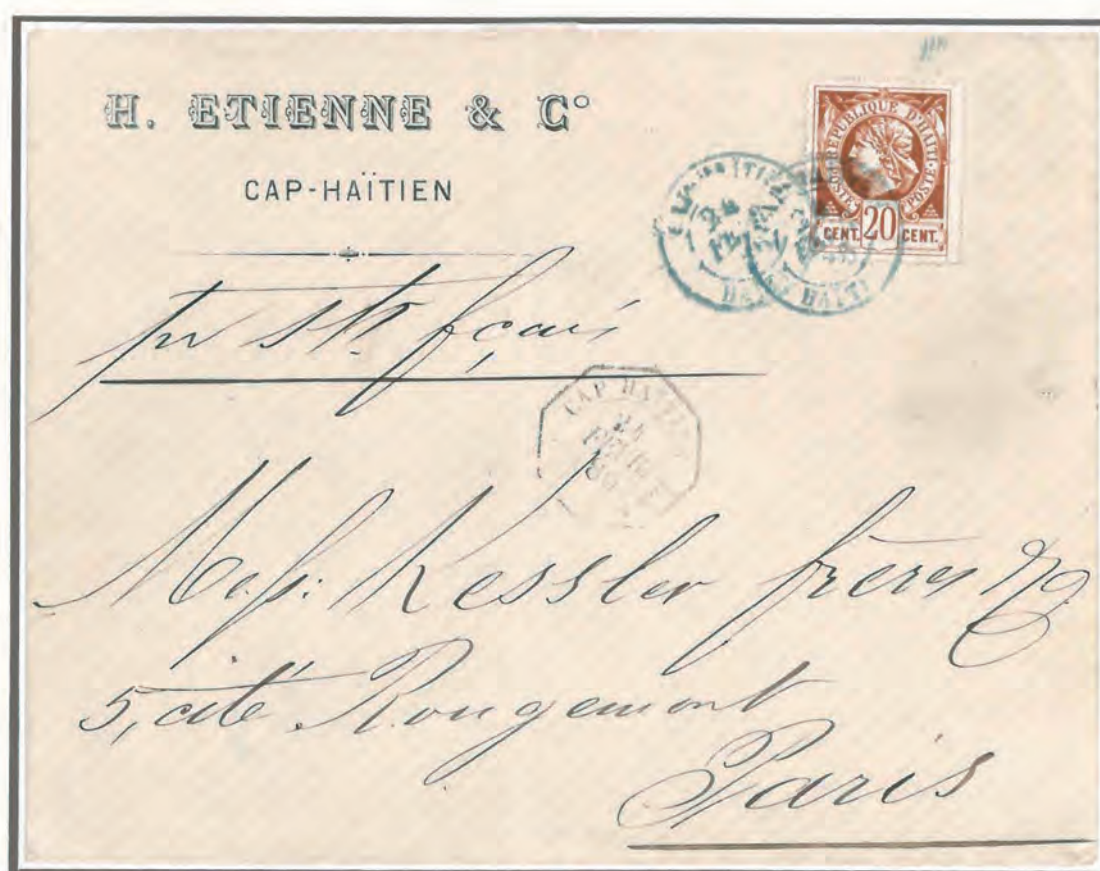 H. ETIENNE & C°
CAP-HAÏTIEN
REPUBLIQUE D'HAITI
POSTE POSTE
CENT. 20 CENT.
HAITI
pr
CAP HAITI
24
Kessler frères
5, cité Rougemont
Paris